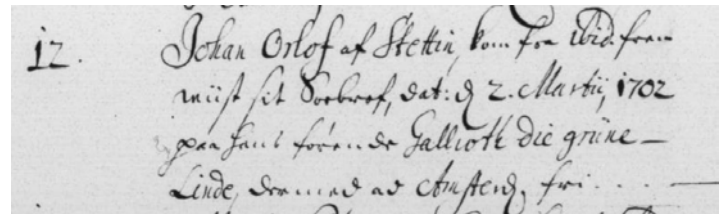 12. Johan Orlof af Stettin, kom fra ibid. frem
wiist sit Söebref, dat: d 2. Martij, 1702
paa hans førende Gallioth die grüne
Linde, dermed ad Amsterd. fri . . . .